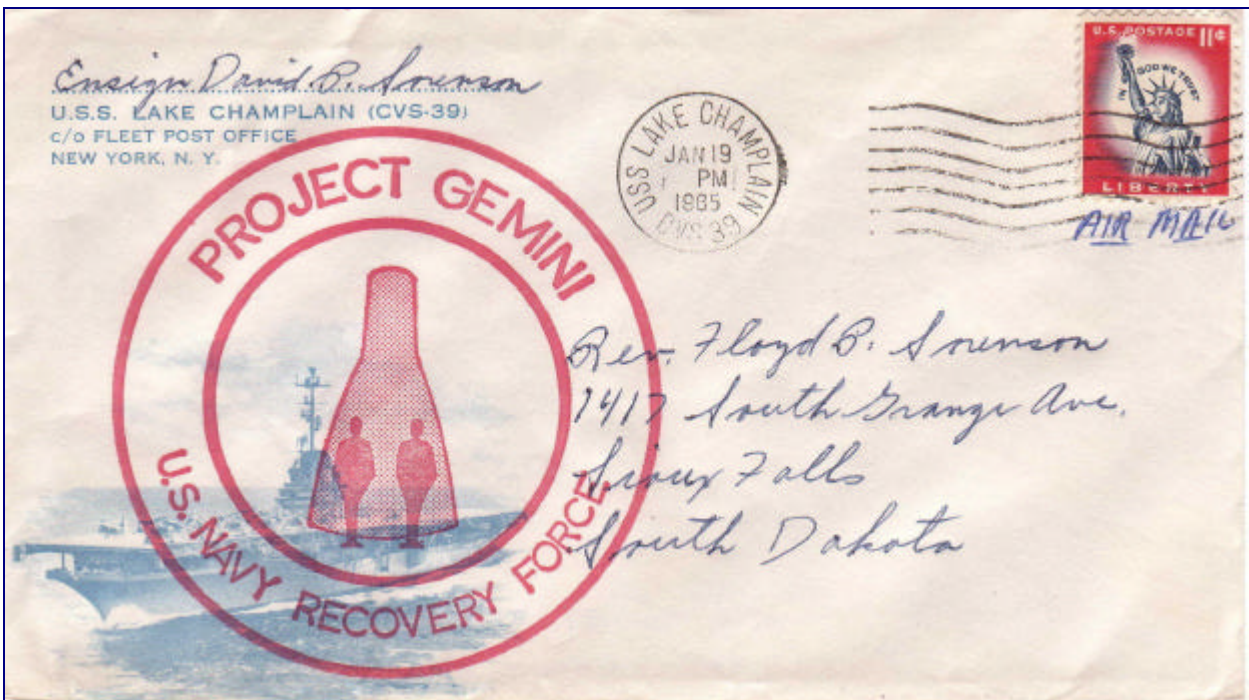 Ensign David B. Sorenson
U.S.S. LAKE CHAMPLAIN (CVS-39)
C/O FLEET POST OFFICE
NEW YORK, N. Y.
USS LAKE CHAMPLAIN
JAN 19
PM
1965
CVS-39
U.S. POSTAGE 11¢
IN GOD WE TRUST
LIBERTY
AIR MAIL
PROJECT GEMINI
U.S. NAVY RECOVERY FORCE
Rev. Floyd B. Sorenson
1417 South Grange Ave.
Sioux Falls
South Dakota